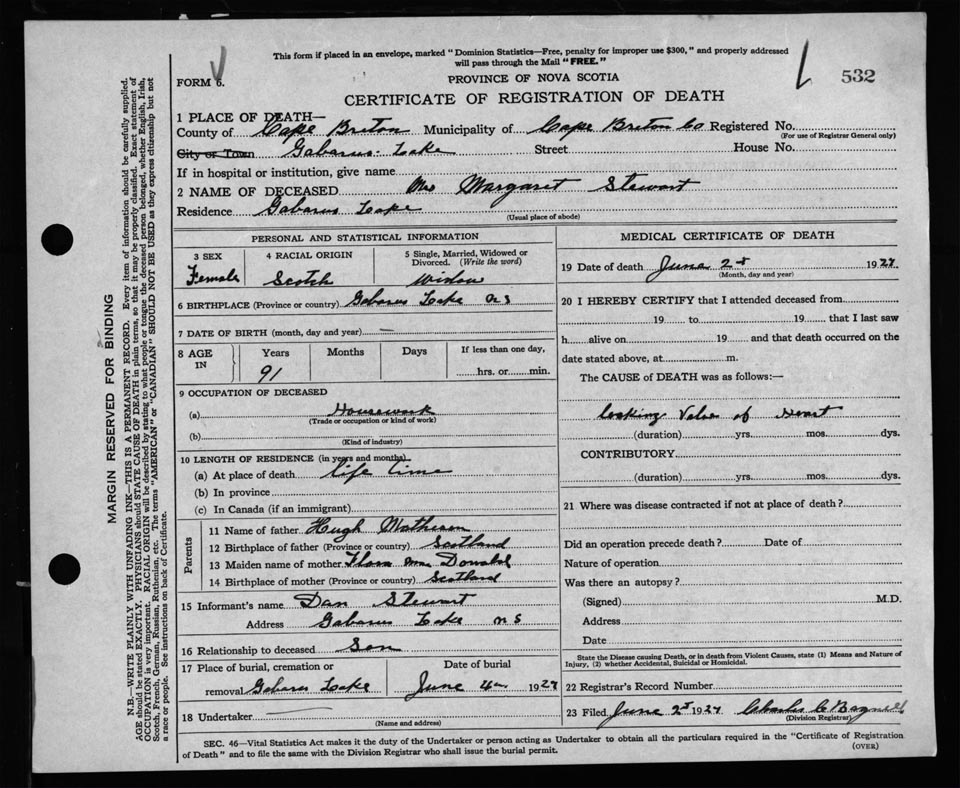 This form if placed in an envelope, marked "Dominion Statistics—Free, penalty for improper use $300," and properly addressed
will pass through the Mail "FREE."
FORM 6.
PROVINCE OF NOVA SCOTIA
532
CERTIFICATE OF REGISTRATION OF DEATH
1 PLACE OF DEATH—
County of Cape Breton Municipality of Cape Breton Co Registered No.
(For use of Registrar General only)
City or Town Gabarus Lake Street House No.
If in hospital or institution, give name
2 NAME OF DECEASED Mrs Margaret Stewart
Residence Gabarus Lake
(Usual place of abode)
PERSONAL AND STATISTICAL INFORMATION
3 SEX 4 RACIAL ORIGIN 5 Single, Married, Widowed or
Divorced. (Write the word)
Female Scotch Widow
6 BIRTHPLACE (Province or country) Gabarus Lake N S
7 DATE OF BIRTH (month, day and year) —
8 AGE IN Years Months Days If less than one day,
91 hrs. or min.
9 OCCUPATION OF DECEASED
(a) Housework
(Trade or occupation or kind of work)
(b)
(Kind of industry)
10 LENGTH OF RESIDENCE (in years and months)
(a) At place of death life time
(b) In province
(c) In Canada (if an immigrant)
Parents
11 Name of father Hugh Matheson
12 Birthplace of father (Province or country) Scotland
13 Maiden name of mother Flora Donald
14 Birthplace of mother (Province or country) Scotland
15 Informant's name Dan Stewart
Address Gabarus Lake N S
16 Relationship to deceased Son
17 Place of burial, cremation or Date of burial
removal Gabarus Lake June 4 1927
18 Undertaker
(Name and address)
MEDICAL CERTIFICATE OF DEATH
19 Date of death June 2 1927
(Month, day and year)
20 I HEREBY CERTIFY that I attended deceased from
19 to 19 that I last saw
h alive on 19 and that death occurred on the
date stated above, at m.
The CAUSE of DEATH was as follows:—
leaking Valve of Heart
(duration) yrs. mos. dys.
CONTRIBUTORY
(duration) yrs. mos. dys.
21 Where was disease contracted if not at place of death?
Did an operation precede death? Date of
Nature of operation
Was there an autopsy?
(Signed) M.D.
Address
Date
State the Disease causing Death, or in death from Violent Causes, state (1) Means and Nature of
Injury, (2) whether Accidental, Suicidal or Homicidal.
22 Registrar's Record Number
23 Filed June 2 1927 Charles C Bagnell
(Division Registrar)
SEC. 46—Vital Statistics Act makes it the duty of the Undertaker or person acting as Undertaker to obtain all the particulars required in the "Certificate of Registration
of Death" and to file the same with the Division Registrar who shall issue the burial permit.
(OVER)
MARGIN RESERVED FOR BINDING
N.B.—WRITE PLAINLY WITH UNFADING INK—THIS IS A PERMANENT RECORD. Every item of information should be carefully supplied.
AGE should be stated EXACTLY. PHYSICIANS should STATE CAUSE OF DEATH in plain terms, so that it may be properly classified. Exact statement of
OCCUPATION is very important. RACIAL ORIGIN will be described by stating to what people or tongue the deceased person belonged, whether English, Irish,
Scotch, French, German, Russian, Ruthenian, etc. The terms "AMERICAN" or "CANADIAN" SHOULD NOT BE USED as they express citizenship but not
a race or people. See instructions on back of Certificate.